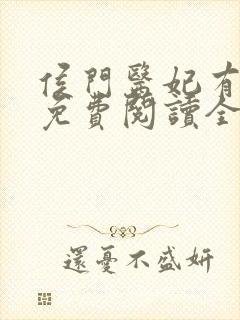 侯門醫妃有
免費閱讀全
還憂不盛妍